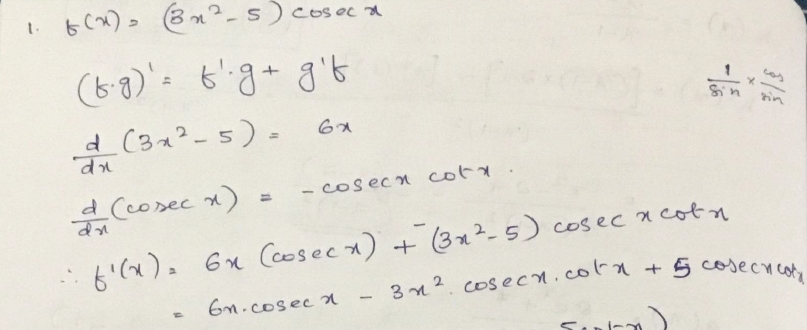 1. f(x) = (3x² - 5) cosec x
(f.g)' = f'.g + g'f
1/sin x × cos/sin
d/dx (3x² - 5) = 6x
d/dx (cosec x) = - cosec x cot x.
∴ f'(x) = 6x (cosec x) + -(3x² - 5) cosec x cot x
= 6x. cosec x - 3x². cosec x. cot x + 5 cosec x cot x